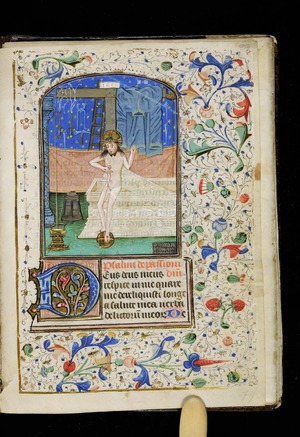 Psalmi de passione
Eus deus meus
respice in me quare
me dereliquisti longe
a salute mea verba
delictorum meorum